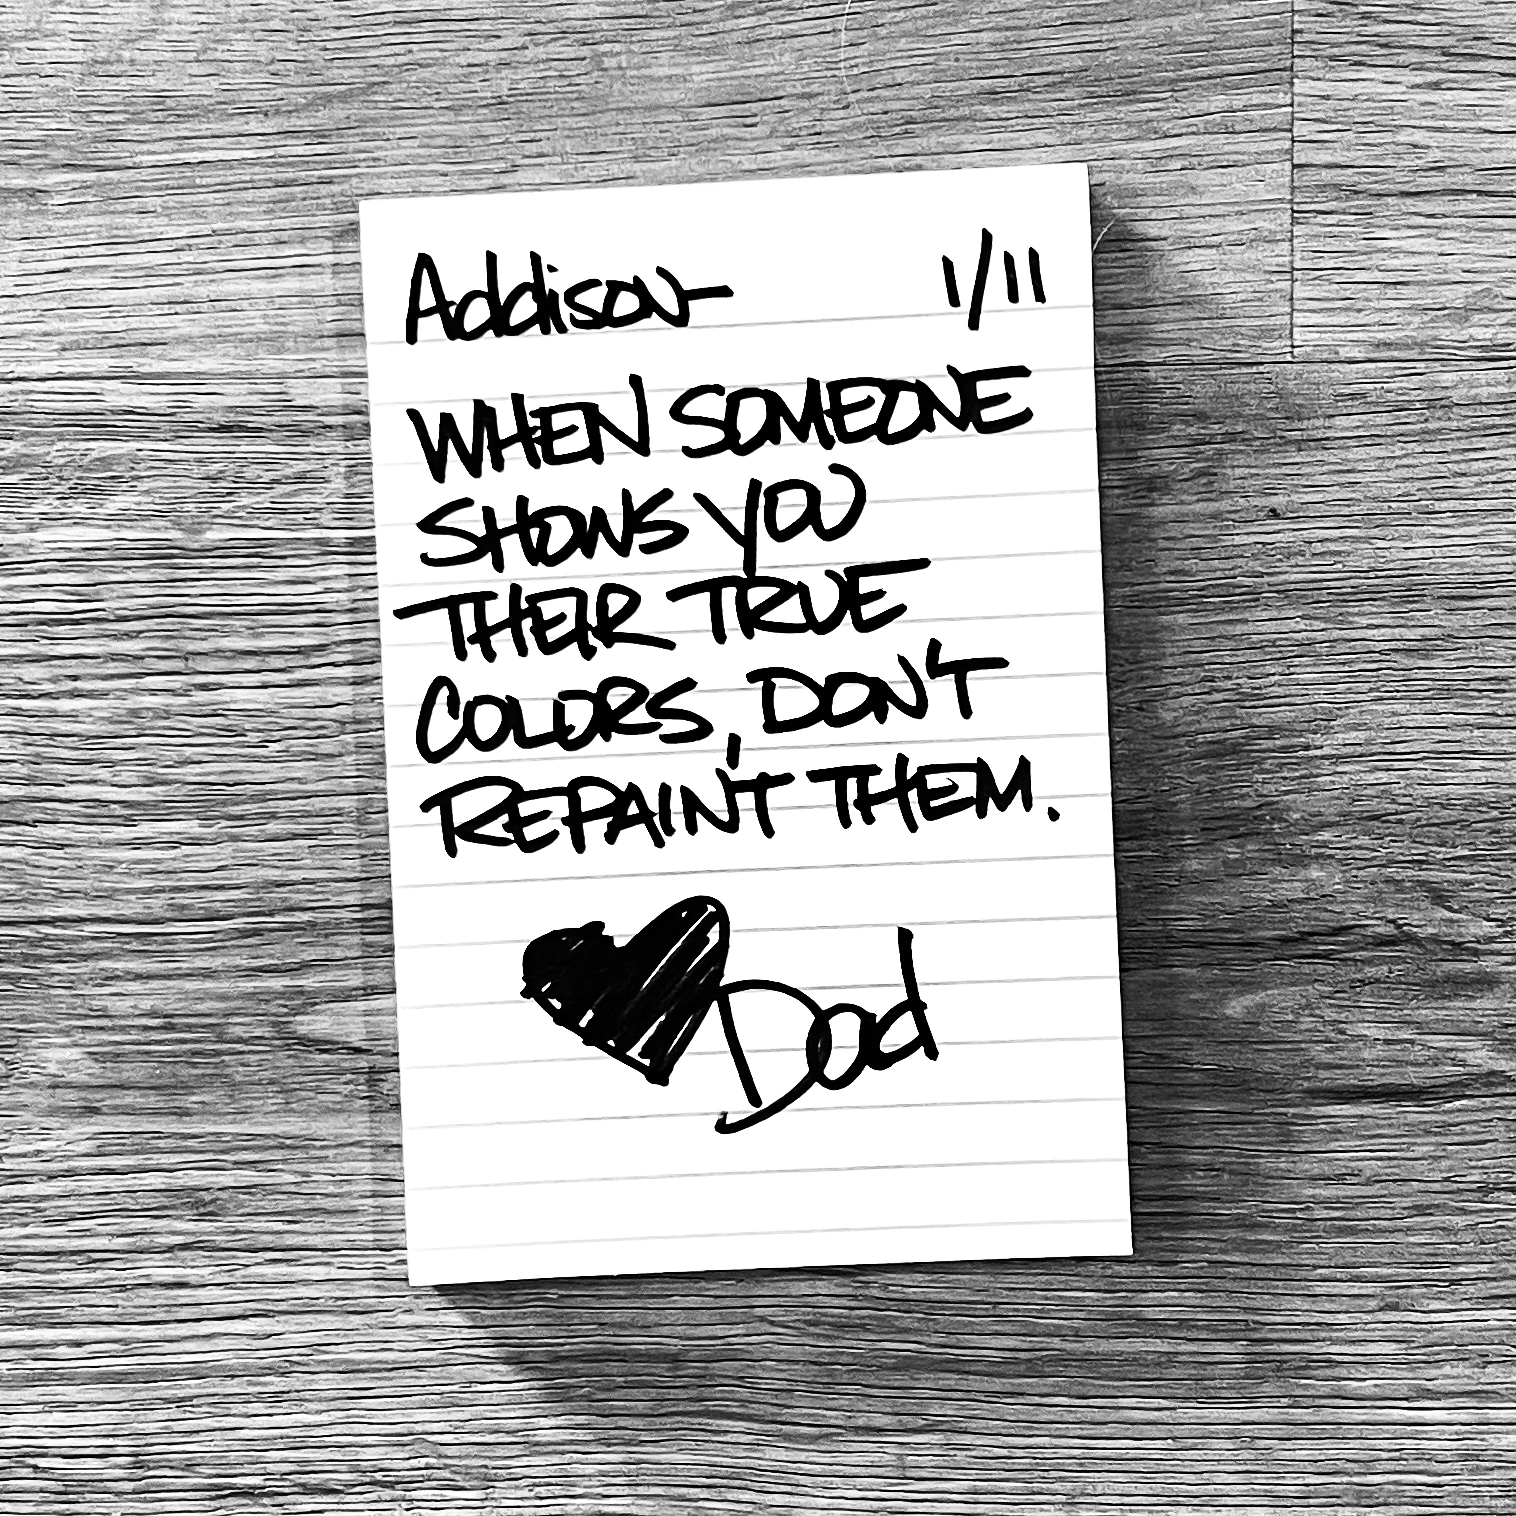 Addison- 1/11
WHEN SOMEONE
SHOWS YOU
THEIR TRUE
COLORS, DON'T
REPAINT THEM.
Dad